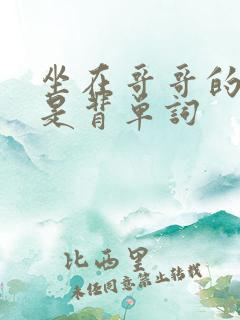 坐在哥哥的
是背单詞
比西里
未经同意禁止转载